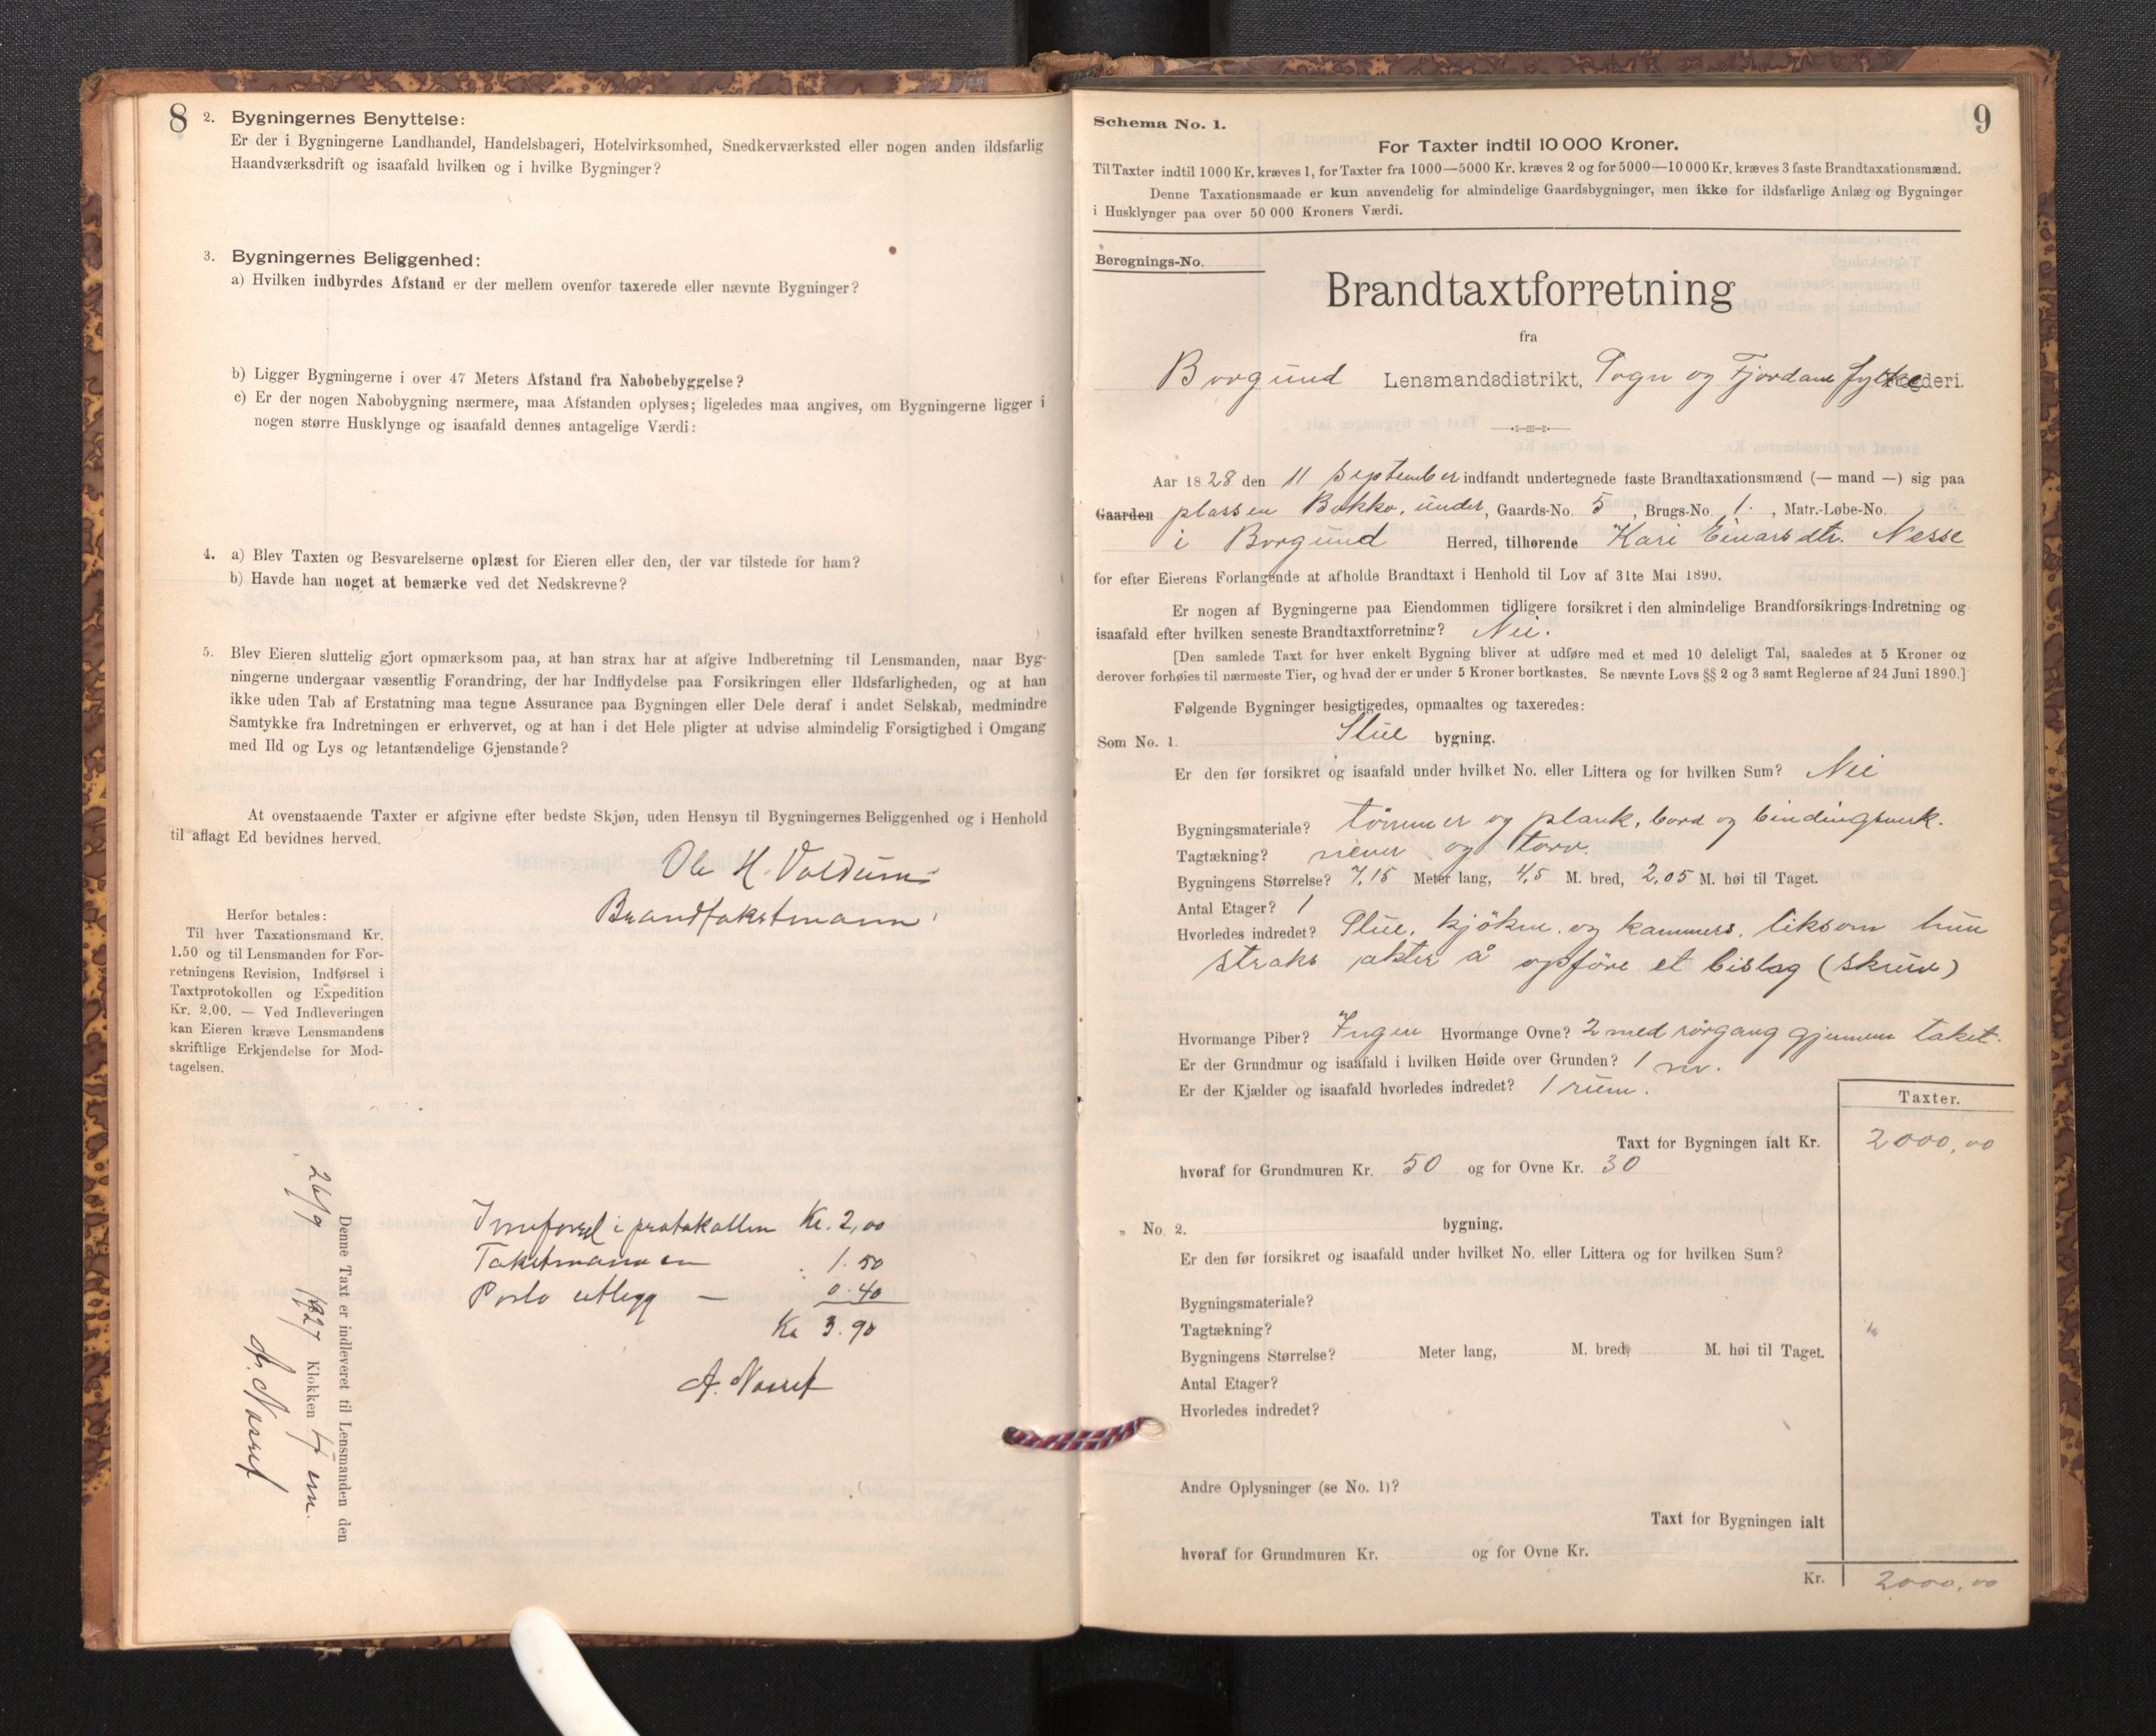 8
2. Bygningernes Benyttelse:
Er der i Bygningerne Landhandel, Handelsbageri, Hotelvirksomhed, Snedkerværksted eller nogen anden ildsfarlig
Haandværksdrift og isaafald hvilken og i hvilke Bygninger?
3. Bygningernes Beliggenhed:
a) Hvilken indbyrdes Afstand er der mellem ovenfor taxerede eller nævnte Bygninger?
b) Ligger Bygningerne i over 47 Meters Afstand fra Nabobebyggelse?
c) Er der nogen Nabobygning nærmere, maa Afstanden oplyses; ligeledes maa angives, om Bygningerne ligger i
nogen større Husklynge og isaafald dennes antagelige Værdi:
4. a) Blev Taxten og Besvarelserne oplæst for Eieren eller den, der var tilstede for ham?
b) Havde han noget at bemærke ved det Nedskrevne?
5. Blev Eieren sluttelig gjort opmærksom paa, at han strax har at afgive Indberetning til Lensmanden, naar Byg-
ningerne undergaar væsentlig Forandring, der har Indflydelse paa Forsikringen eller Ildsfarligheden, og at han
ikke uden Tab af Erstatning maa tegne Assurance paa Bygningen eller Dele deraf i andet Selskab, medmindre
Samtykke fra Indretningen er erhvervet, og at han i det Hele pligter at udvise almindelig Forsigtighed i Omgang
med Ild og Lys og letantændelige Gjenstande?
At ovenstaaende Taxter er afgivne efter bedste Skjøn, uden Hensyn til Bygningernes Beliggenhed og i Henhold
til aflagt Ed bevidnes herved.
Ole H. Voldum
Brandtakstmann
Herfor betales:
Til hver Taxationsmand Kr.
1.50 og til Lensmanden for For-
retningens Revision, Indførsel i
Taxtprotokollen og Expedition
Kr. 2.00. — Ved Indleveringen
kan Eieren kræve Lensmandens
skriftlige Erkjendelse for Mod-
tagelsen.
Denne Taxt er indleveret til Lensmanden den
26/9 1927 Klokken 4 em.
Innførsel i protokollen Kr. 2,00
Takstmannen 1.50
Porto utlegg — 0.40
Kr 3.90
9
Schema No. 1.
For Taxter indtil 10 000 Kroner.
Til Taxter indtil 1000 Kr. kræves 1, for Taxter fra 1000—5000 Kr. kræves 2 og for 5000—10 000 Kr. kræves 3 faste Brandtaxationsmænd.
Denne Taxationsmaade er kun anvendelig for almindelige Gaardsbygninger, men ikke for ildsfarlige Anlæg og Bygninger
i Husklynger paa over 50 000 Kroners Værdi.
Beregnings-No.
Brandtaxtforretning
fra
Borgund Lensmandsdistrikt, Sogn og Fjordane fylke Fogderi.
Aar 1828 den 11 September indfandt undertegnede faste Brandtaxationsmænd (— mand —) sig paa
Gaarden plassen Bakko, under, Gaards-No. 5, Brugs-No. 1., Matr.-Løbe-No.
i Borgund Herred, tilhørende Kari Einarsdtr. Nesse
for efter Eierens Forlangende at afholde Brandtaxt i Henhold til Lov af 31te Mai 1890.
Er nogen af Bygningerne paa Eiendommen tidligere forsikret i den almindelige Brandforsikrings-Indretning og
isaafald efter hvilken seneste Brandtaxtforretning? Nei.
[Den samlede Taxt for hver enkelt Bygning bliver at udføre med et med 10 deleligt Tal, saaledes at 5 Kroner og
derover forhøies til nærmeste Tier, og hvad der er under 5 Kroner bortkastes. Se nævnte Lovs §§ 2 og 3 samt Reglerne af 24 Juni 1890.]
Følgende Bygninger besigtigedes, opmaaltes og taxeredes:
Som No. 1. Stue bygning.
Er den før forsikret og isaafald under hvilket No. eller Littera og for hvilken Sum? Nei
Bygningsmateriale? tömmer og plank, bord og bindingsverk.
Tagtækning? never og torv.
Bygningens Størrelse? 7,15 Meter lang, 4,5 M. bred, 2,05 M. høi til Taget.
Antal Etager? 1
Hvorledes indredet? Stue, kjöken og kammers, liksom hun
straks akter å opföre et bislag (skruv)
Hvormange Piber? Ingen Hvormange Ovne? 2 med rörgang gjennem taket.
Er der Grundmur og isaafald i hvilken Høide over Grunden? 1 m.
Er der Kjælder og isaafald hvorledes indredet? 1 rum.
Taxter.
Taxt for Bygningen ialt Kr. 2000,00
hvoraf for Grundmuren Kr. 50 og for Ovne Kr. 30
„ No. 2. bygning.
Er den før forsikret og isaafald under hvilket No. eller Littera og for hvilken Sum?
Bygningsmateriale?
Tagtækning?
Bygningens Størrelse? Meter lang, M. bred, M. høi til Taget.
Antal Etager?
Hvorledes indredet?
Andre Oplysninger (se No. 1)?
Taxt for Bygningen ialt
hvoraf for Grundmuren Kr. og for Ovne Kr.
Kr. 2000,00